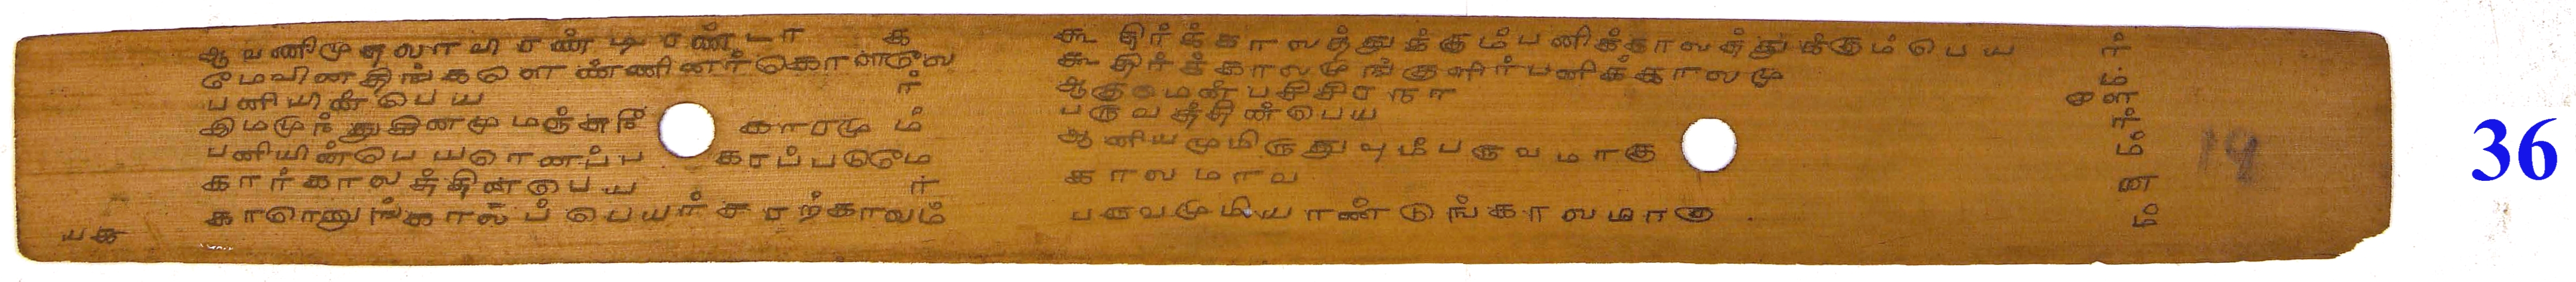 ஆவணிமுதலாவிரண்டிரண்டா க
மேவினதிங்களெண்ணினர்கொளலே
பனியின்பெய ர்
இமமுந்துகினமுமஞ்சநீ காரமு ம்
பனியின்பெயரெனப்ப கரப்படுமே
கார்காலத்தின்பெய ர்
காரெனுங்கால்ப் பெயர்சரற்காலம்
யக
கூதிர்க்காலத்துக்கும்பனிக்காலத்துக்கும்பெய ர்
கூதிர்க்காலமுங்குளிர்பனிக்காலமு ம்
ஆகுமென்ப
பருவத்தின்பெய ர்
ஆனியமுமிருதுவும்பருவமாகு ம்
காலமாவ ன
பருவமுமியாண்டுங்காலமாகு ம்
19
36